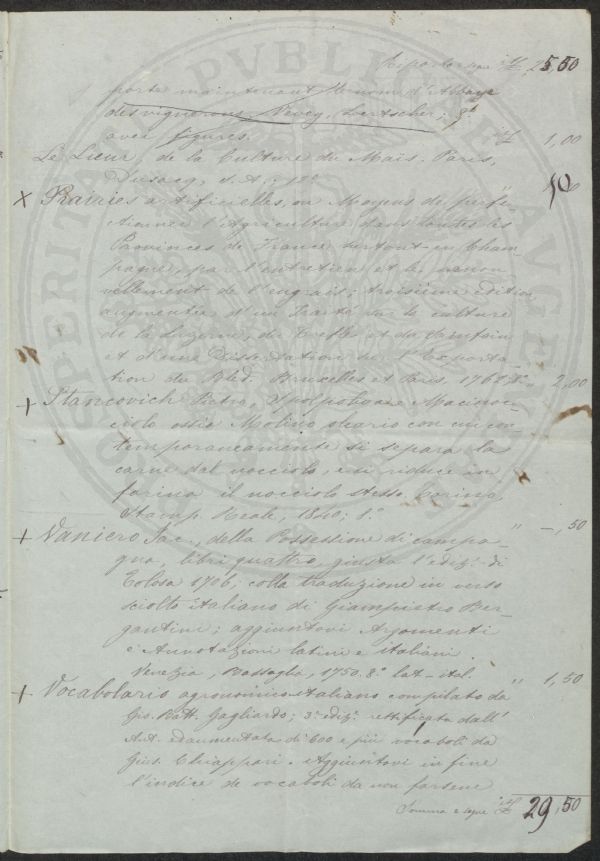 Riporto segue £ 25,50
porte maintenant le nom d'Abbaye
des vignerons. Vevey, Lertscher; 8°
avec figures. £ 1,00
Le Lieur, de la Culture du Maïs. Paris,
Dusacq, s. A.; 12°
× Prairies artificielles, ou Moyens de perfe-
ctionner l'Agriculture dans toutes les
Provinces de France surtout en Cham-
pagne, par l'entretien et le renou-
vellement de l'engrais; troisième édition
augmentée d'un Traité sur la culture
de la Luzerne, du Trefle et du Sainfoin
et d'une Dissertation sur l'Exporta-
tion du Bled. Bruxelles et Paris. 1762. 2,00
+ Stancovich Pietro, Spolpoliva e Macinoc-
ciolo ossia Molino oleario con cui con-
temporaneamente si separa la
carne dal nocciolo, e si riduce in
farina il nocciolo stesso. Torino,
Stamp. Reale, 1840; 8° " –,50
+ Vaniero Jac., della Possessione di campa-
gna, libri quattro, giusta l'ediz. di
Tolosa 1706; colla traduzione in verso
sciolto italiano di Giampietro Ber-
gantini; aggiuntovi Argomenti
e Annotazioni latini e italiani.
Venezia, Bassaglia, 1750. 8° lat-ital. " 1,50
+ Vocabolario agronomico italiano compilato da
Gio. Batt. Gagliardo; 3ª ediz. rettificata dall'
Aut. ed aumentata di 600 e più vocaboli da
Gius. Chiappari. Aggiuntovi in fine
l'indice de vocaboli da non farsene
Somma e segue £ 29,50
PROSPERITAS PVBLICA AVGENDA